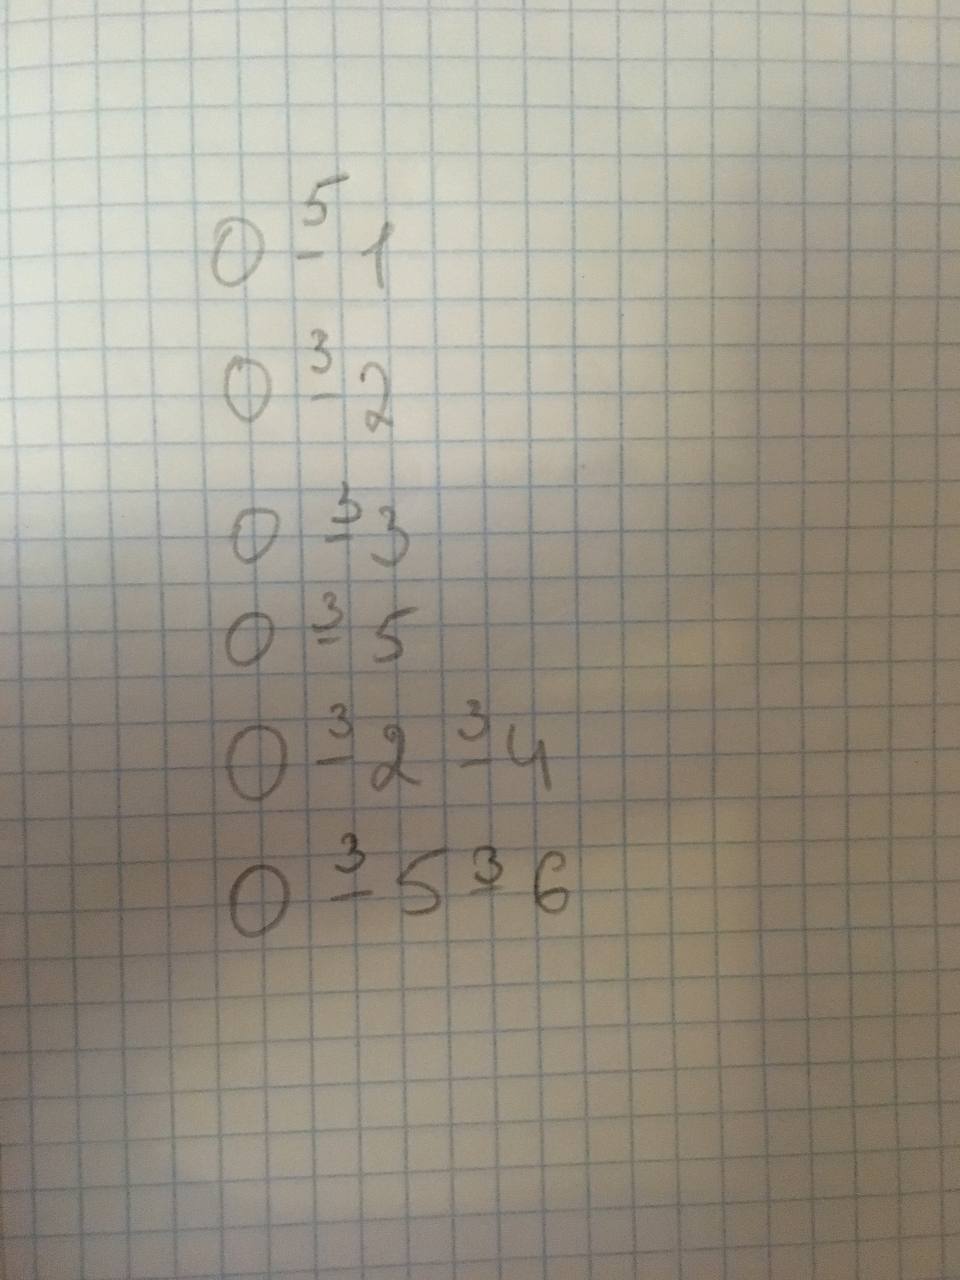 0 5- 1
0 3- 2
0 3- 3
0 3- 5
0 3- 2 3- 4
0 3- 5 3- 6